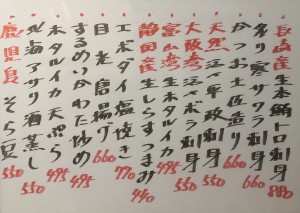 長崎産 生本鮪トロ刺身 880
ネリ寒サワラ刺身
かつお土佐造り 660
天然 江の年政刺身
大阪湾 江の年ボラ刺身 550
富山湾 生ホタルイカ 495
静岡産 生しらすつまみ 440
エボダイ塩焼き 770
目光唐揚げ 660
するめいかわた炒め 495
ホタルイカ天ぷら 495
北海アサリ酒蒸し 550
鹿児島 そら豆 550